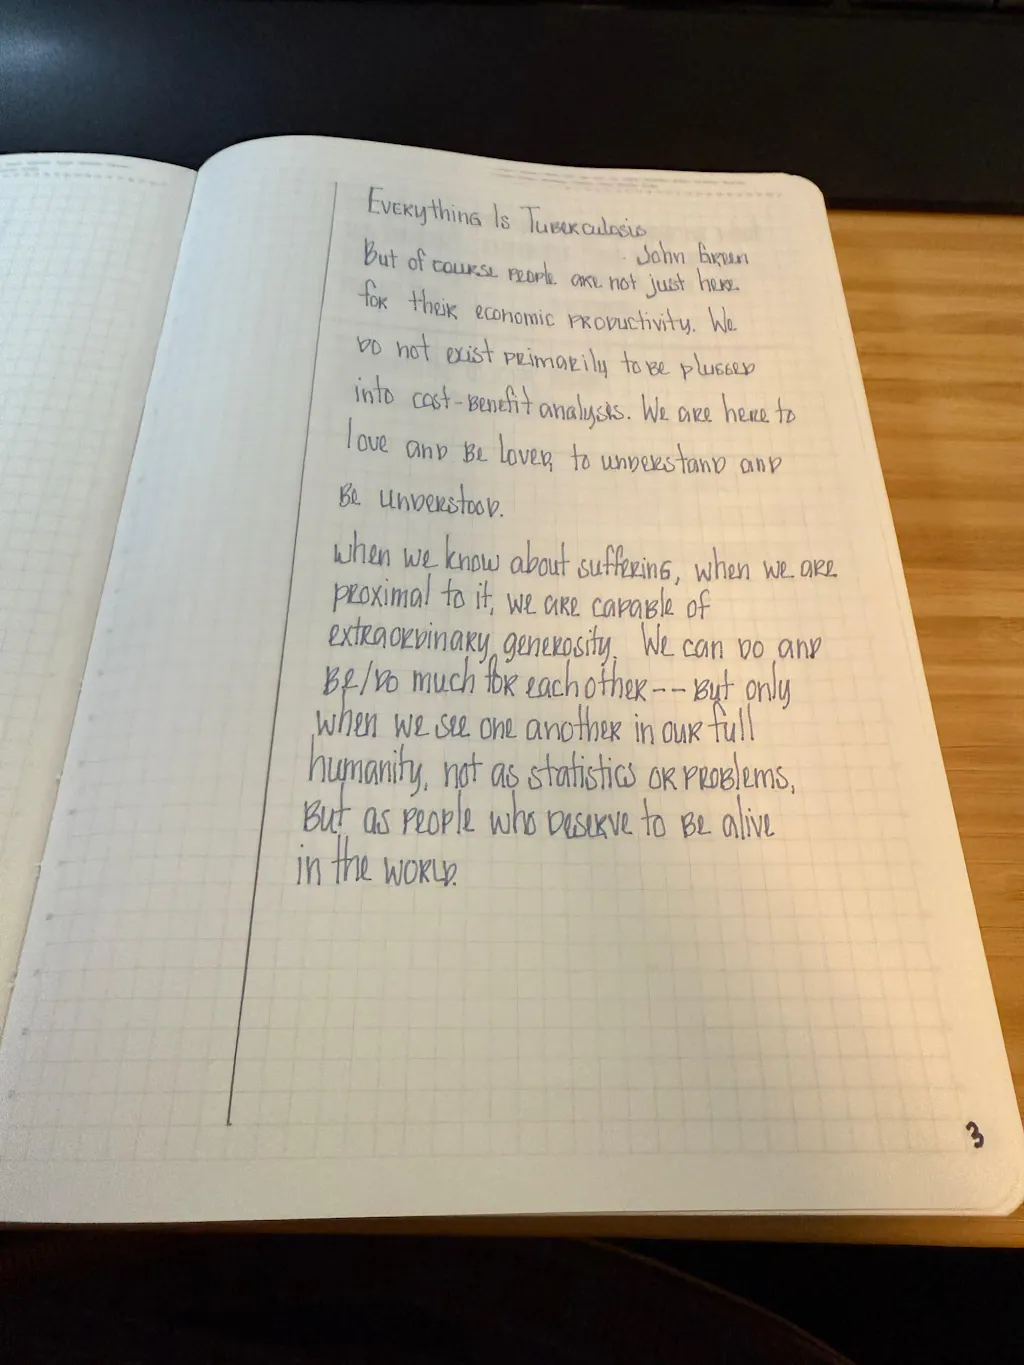 Everything Is Tuberculosis
John Green
But of course people are not just here
for their economic productivity. We
do not exist primarily to be plugged
into cost-benefit analysis. We are here to
love and be loved, to understand and
be understood.
when we know about suffering, when we are
proximal to it, we are capable of
extraordinary generosity. We can do and
be/do much for each other -- but only
when we see one another in our full
humanity, not as statistics or problems,
but as people who deserve to be alive
in the world.
3